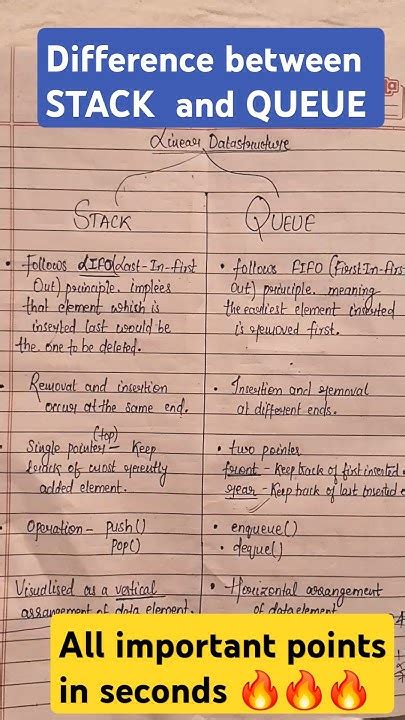 Difference between
STACK and QUEUE
Linear Datastructure
STACK
• Follows LIFO (Last-In-first
Out) principle. implees
that element which is
inserted last would be
the one to be deleted.
• Removal and insertion
occur at the same end.
• Single pointer (top) - Keep
track of most recently
added element.
• Operation - push()
pop()
Visualised as a vertical
arrangement of data element.
QUEUE
• follows FIFO (First-In-first
Out) principle. meaning
the earliest element inserted
is removed first.
• Insertion and removal
at different ends.
• two pointer
front - Keep track of first inserted
rear - Keep track of last inserted
• enqueue()
• deque()
• Horizontal arrangement
of data element
All important points
in seconds 🔥🔥🔥